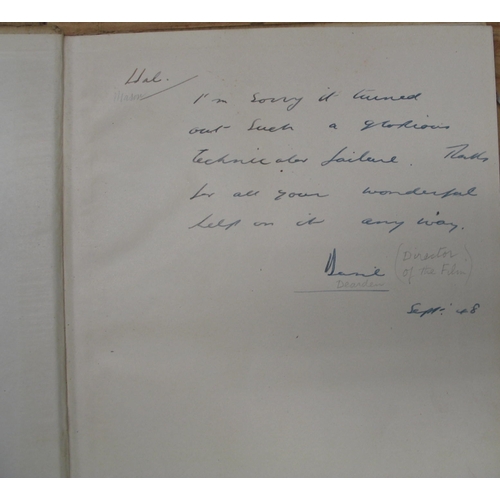 Hal.
I'm sorry it turned
out such a glorious
Technicolor failure. Thanks
for all your wonderful
help on it any way.
Basil (Director
Dearden of the Film)
Sept. 48